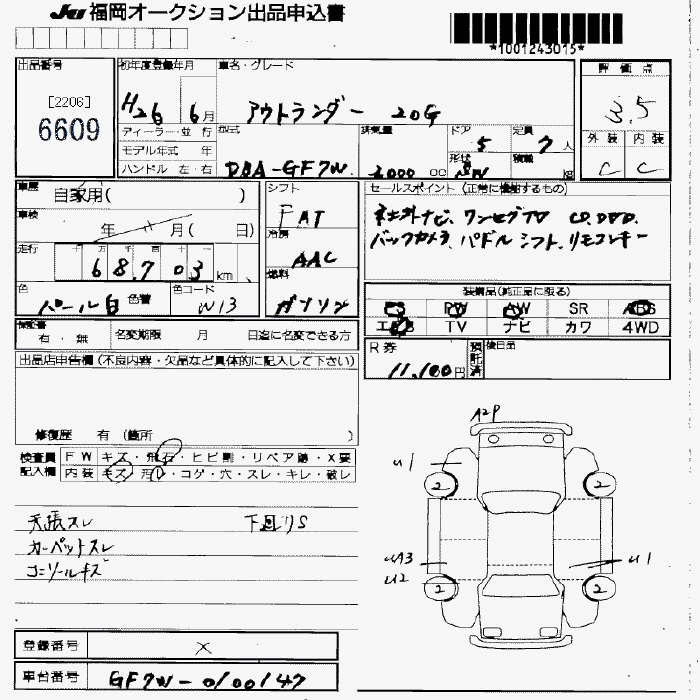 JU 福岡オークション出品申込書
*1001243015*
出品番号
[2206]
6609
初年度登録年月
H26 6月
車名・グレード
アウトランダー 20G
評価点
3.5
外装 内装
C C
ディーラー・並行
モデル年式 年
ハンドル 左・右
型式
DBA-GF7W
排気量
2000 cc
ドア
5
形状
SW
定員
7人
積載
kg
車歴
自家用( )
車検
年 月( 日)
走行
十 万 千 百 十 一
68,703 km
色
パール白 色替
色コード
W13
シフト
FAT
冷房
AAC
燃料
ガソリン
セールスポイント (正常に機能するもの)
社外ナビ、ワンセグTV CD.DVD.
バックカメラ、パドルシフト、リモコンキー
装備品(純正品に限る)
PS PW AW SR ABS
エアB TV ナビ カワ 4WD
保証書
有・無
名変期限 月 日迄に名変できる方
R券
11,100円
預託済
後日品
出品店申告欄 (不良内容・欠品など具体的に記入して下さい)
修復歴 有 (箇所 )
検査員
記入欄
FW キズ・飛石・ヒビ割・リペア跡・X要
内装 キズ・汚レ・コゲ・穴・スレ・キレ・破レ
天張スレ 下廻りS
カーペットスレ
コンソールキズ
A2P
U1
2 2
UA3
U2
U1
2 2
登録番号
X
車台番号
GF7W-0100147